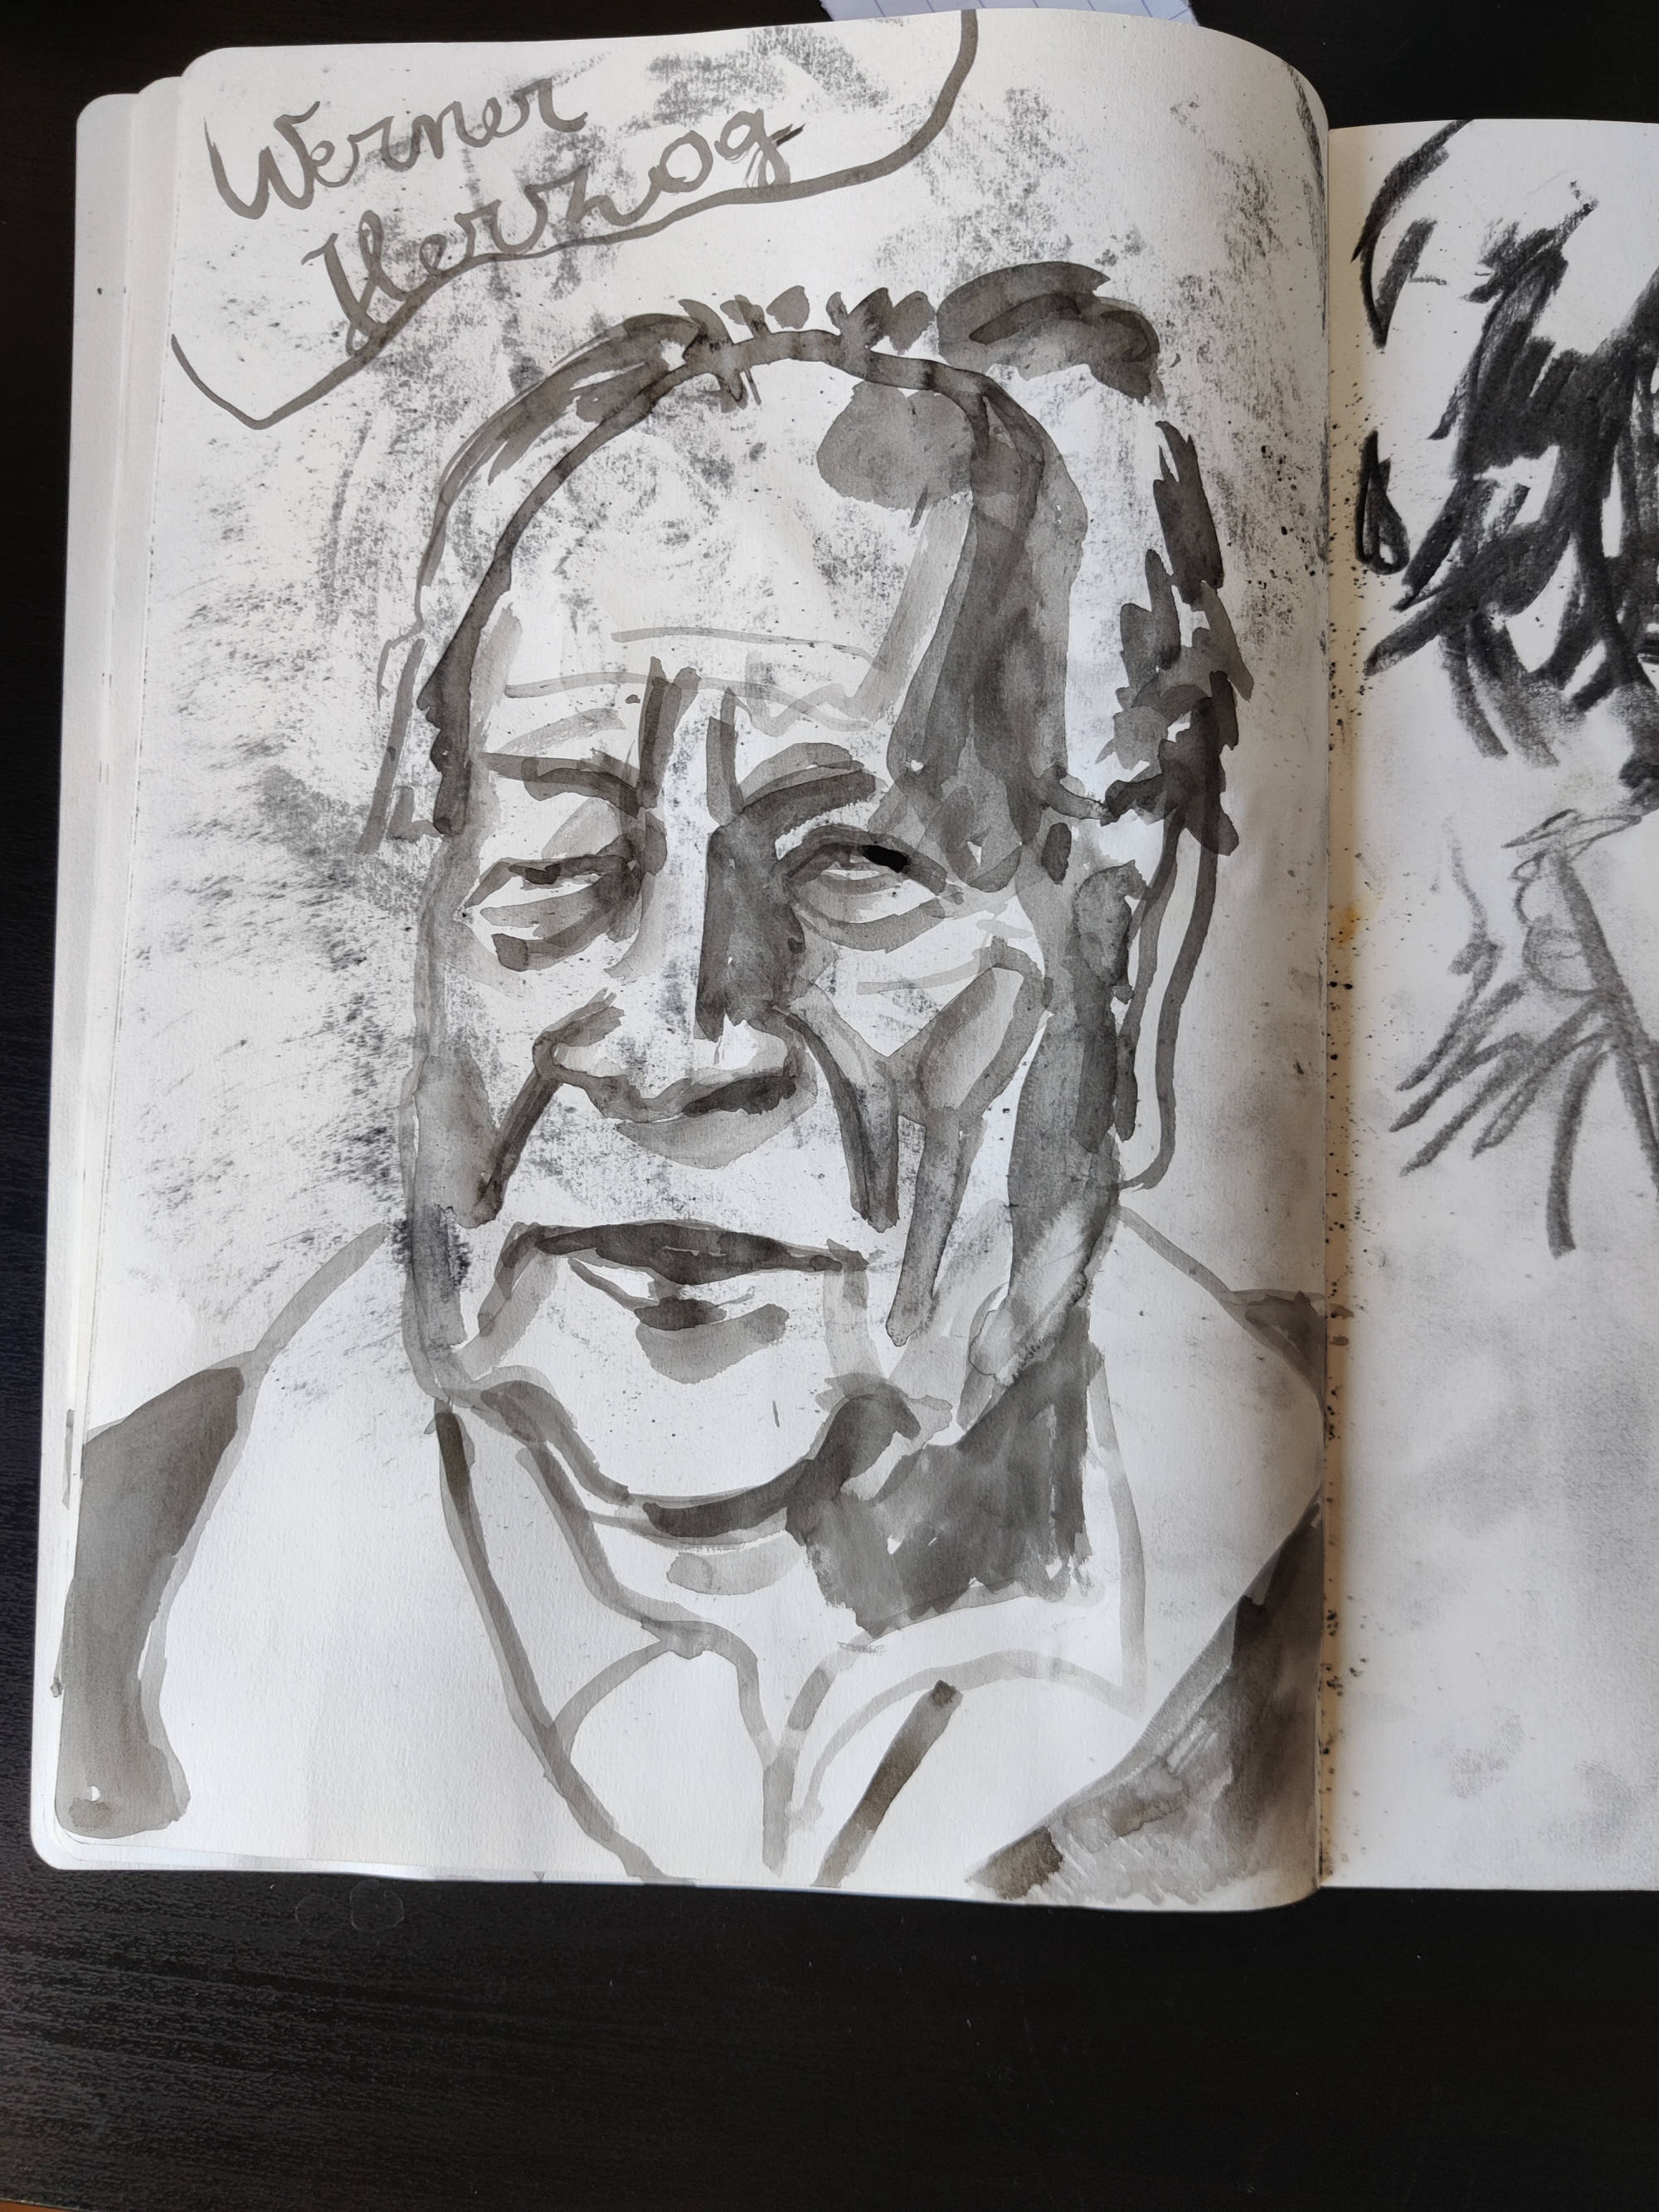 Werner
Herzog